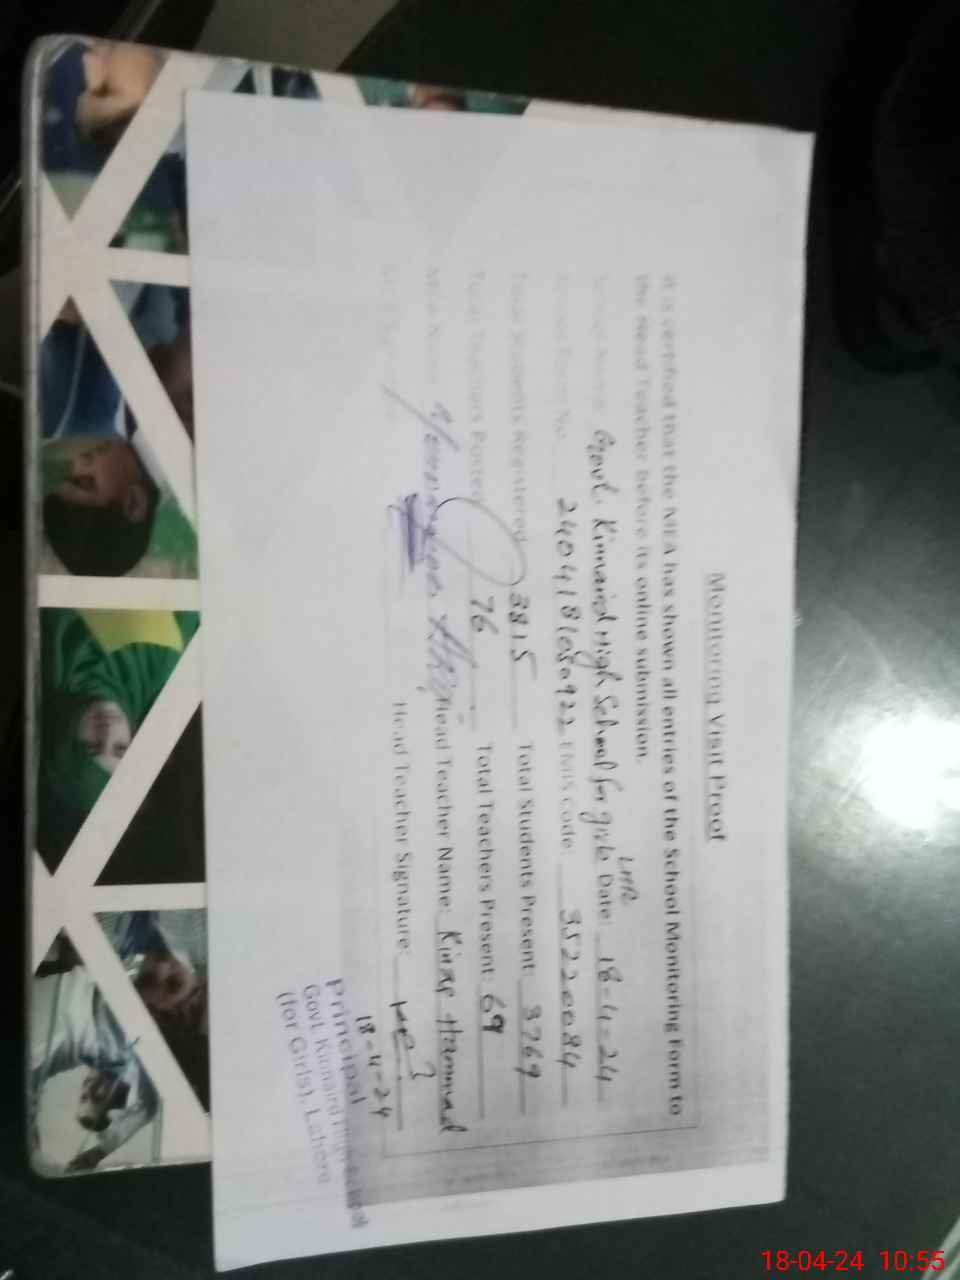 Monitoring Visit Proof
It is certified that the MEA has shown all entries of the School Monitoring Form to
the Head Teacher before its online submission.
School Name: Govt. Kinnaird High School for girls LHR Date: 18-4-24
EMIS Code: 35220084
Total Students Registered 3815 Total Students Present: 3769
Total Teachers Posted 76 Total Teachers Present: 69
MEA Name Head Teacher Name: Hammad
Head Teacher Signature:
18-4-24
Principal
Govt. Kinnaird High School
(for Girls), Lahore
18-04-24 10:55